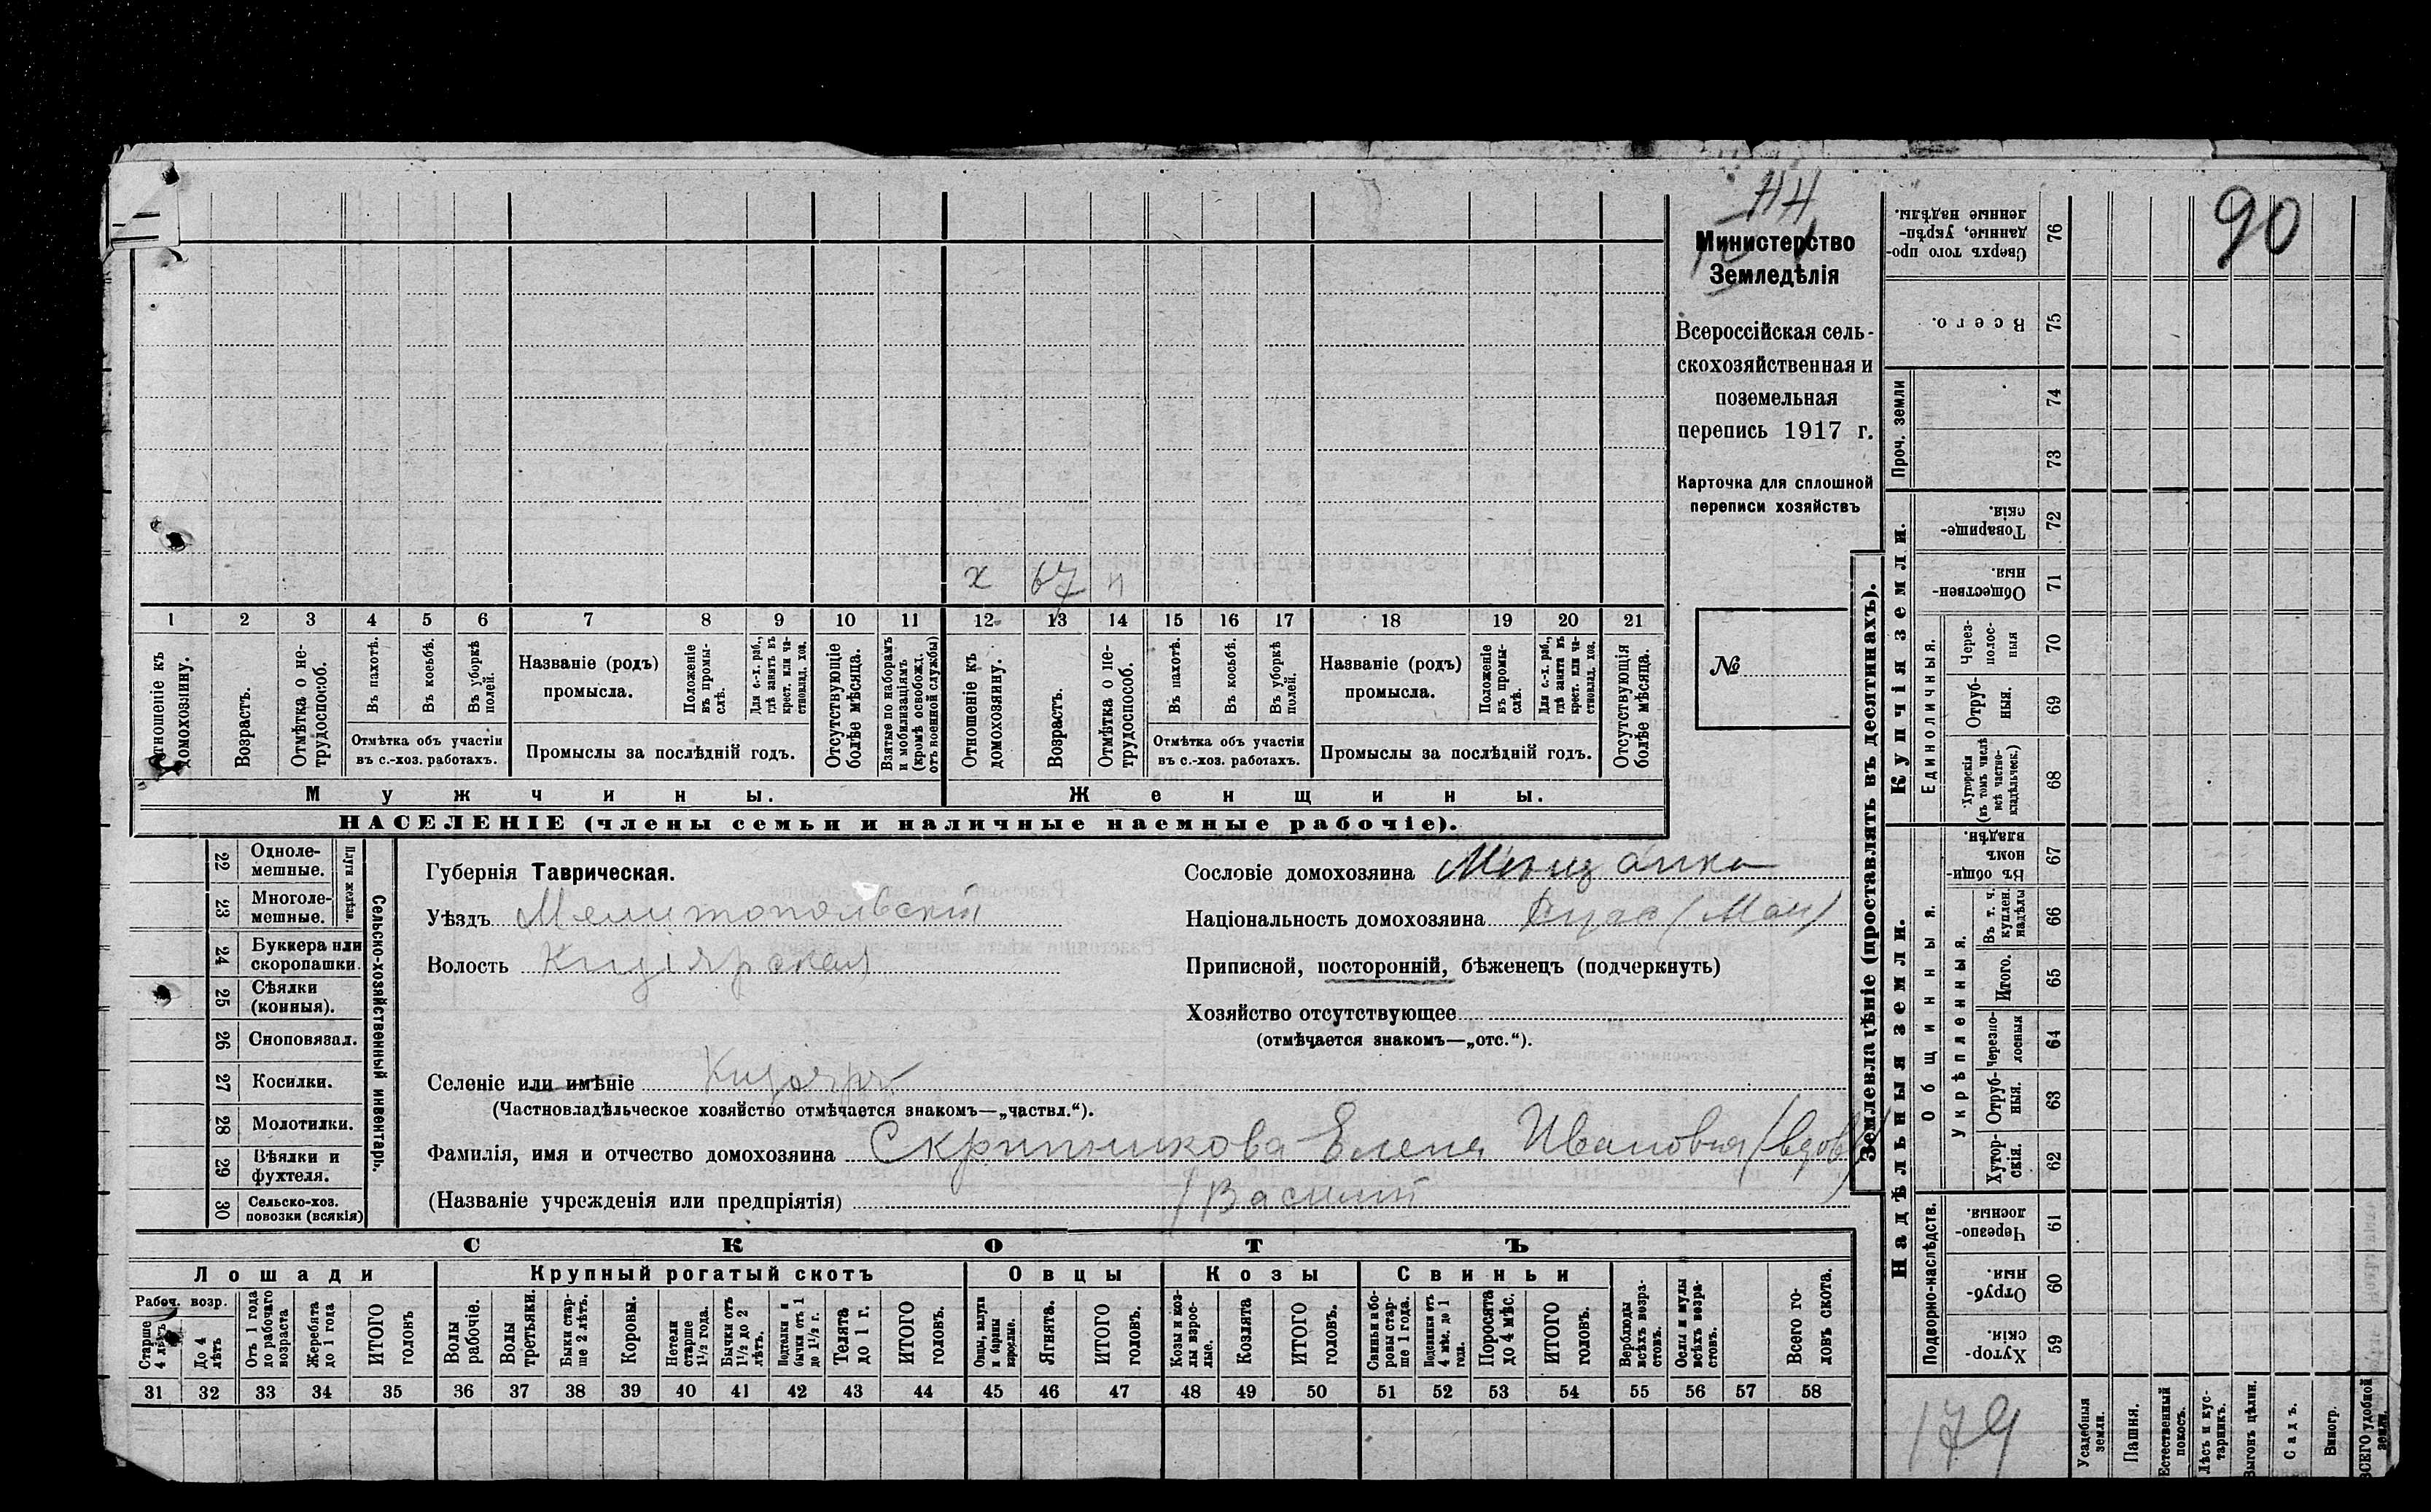 90
Министерство
Земледѣлія
Всероссійская сель-
скохозяйственная и
поземельная
перепись 1917 г.
Карточка для сплошной
переписи хозяйствъ
№
х 67 н
1 2 3 4 5 6 7 8 9 10 11 12 13 14 15 16 17 18 19 20 21
Отношеніе къ домохозяину.
Возрастъ.
Отмѣтка о не-трудоспособ.
Въ пахотѣ.
Въ косьбѣ.
Въ уборкѣ полей.
Отмѣтка объ участіи
въ с.-хоз. работахъ.
Названіе (родъ)
промысла.
Положеніе въ промы-слѣ.
Для с.-х. раб., гдѣ занятъ въ крест. или ча-стновлад. хоз.
Промыслы за послѣдній годъ.
Отсутствующіе болѣе мѣсяца.
Взятые по наборамъ и мобилизаціямъ (кромѣ освобожд. отъ военной службы)
Отношеніе къ домохозяину.
Возрастъ.
Отмѣтка о не-трудоспособ.
Въ пахотѣ.
Въ косьбѣ.
Въ уборкѣ полей.
Отмѣтка объ участіи
въ с.-хоз. работахъ.
Названіе (родъ)
промысла.
Положеніе въ промы-слѣ.
Для с.-х. раб., гдѣ занята въ крест. или ча-стновлад. хоз.
Промыслы за послѣдній годъ.
Отсутствующія болѣе мѣсяца.
Мужчины. Женщины.
НАСЕЛЕНІЕ (члены семьи и наличные наемные рабочіе).
22 Одноле-мешные.
23 Многоле-мешные.
24 Буккера или скоропашки.
25 Сѣялки (конныя).
26 Сноповязал.
27 Косилки.
28 Молотилки.
29 Вѣялки и фухтеля.
30 Сельско-хоз. повозки (всякія)
Сельско-хозяйственный инвентарь.
Губернія Таврическая.
Уѣздъ Мелитопольскій
Волость Кизіярская
Селеніе или имѣніе Кизіяръ
(Частновладѣльческое хозяйство отмѣчается знакомъ—„частвл.“).
Фамилія, имя и отчество домохозяина Скрипникова Елена Ивановна (вдов)
(Названіе учрежденія или предпріятія) (Василій)
Сословіе домохозяина Мѣщанка
Національность домохозяина Рус
Приписной, посторонній, бѣженецъ (подчеркнуть)
Хозяйство отсутствующее
(отмѣчается знакомъ—„отс.“).
СКОТЪ
Лошади Крупный рогатый скотъ Овцы Козы Свиньи
Рабоч. возр.
Старше 4 лѣтъ
До 4 лѣтъ
Отъ 1 года до рабочаго возраста
Жеребята до 1 года
ИТОГО головъ
Волы рабочіе.
Волы третьяки.
Быки стар-ше 2 лѣтъ.
Коровы.
Нетели старше 1½ года.
Бычки отъ 1½ до 2 лѣтъ.
Подтелки и бычки отъ 1 до 1½ г.
Телята до 1 г.
ИТОГО головъ.
Овцы, валухи и бараны взрослые.
Ягнята.
ИТОГО головъ.
Козы и коз-лы взрос-лые.
Козлята
ИТОГО головъ.
Свиньи и бо-ровы стар-ше 1 года.
Подсвинки отъ 4 мѣс. до 1 года.
Поросята до 4 мѣс.
ИТОГО головъ.
Верблюды всѣхъ возра-стовъ.
Ослы и мулы всѣхъ возра-стовъ.
Всего го-ловъ скота.
31 32 33 34 35 36 37 38 39 40 41 42 43 44 45 46 47 48 49 50 51 52 53 54 55 56 57 58
Землевладѣніе (проставлять въ десятинахъ).
Купчія земли.
Надѣльныя земли.
Сверхъ того про-данные, укрѣп-ленные надѣлы. 76
Всего. 75
Проч. земли 74 73
Товарище-скія. 72
Обществен-ныя. 71
Единоличныя.
Через-полос-ныя 70
Отруб-ныя. 69
Хуторскія (въ томъ числѣ всѣ частно-владѣльческ.) 68
Общинныя.
Въ общи-номъ владѣн. 67
Укрѣпленныя.
Въ т. ч. куплен. надѣлы 66
Итого. 65
Черезпо-лосныя 64
Отруб-ныя. 63
Хутор-скія. 62
Подворно-наслѣдств.
Черезпо-лосныя. 61
Отруб-ныя. 60
Хутор-скія. 59
179
Усадебныя земли.
Пашня.
Естественный покосъ.
Лѣсъ и кус-тарникъ.
Выгонъ цѣлин.
Садъ.
Виногр.
ВСЕГО удобной земли.